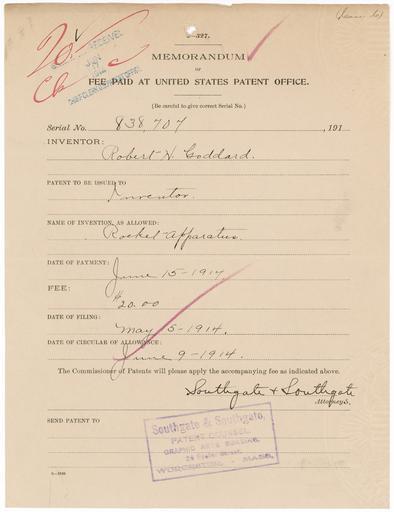 (Issue to)
5-327.
20
MEMORANDUM
OF
FEE PAID AT UNITED STATES PATENT OFFICE.
(Be careful to give correct Serial No.)
Serial No. 838,707 , 191
INVENTOR:
Robert H. Goddard.
PATENT TO BE ISSUED TO
Inventor.
NAME OF INVENTION, AS ALLOWED:
Rocket Apparatus.
DATE OF PAYMENT:
June 15-1914.
FEE:
$20.00
DATE OF FILING:
May 5-1914.
DATE OF CIRCULAR OF ALLOWANCE:
June 9-1914.
The Commissioner of Patents will please apply the accompanying fee as indicated above.
Southgate & Southgate
Attorneys.
SEND PATENT TO
Southgate & Southgate,
PATENT COUNSEL
GRAPHIC ARTS BUILDING,
25 Foster Street,
WORCESTER, - MASS.